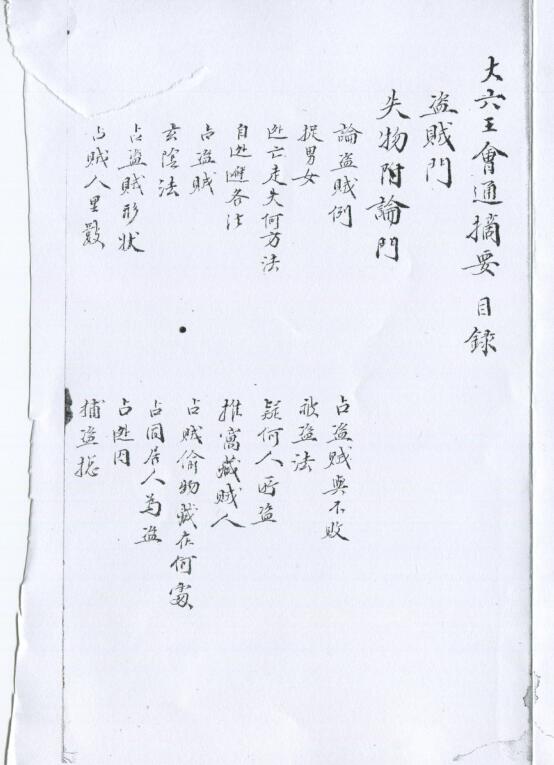 大六壬會通摘要 目錄
盜賊門
失物附論門
論盜賊例
捉男女
逃亡走失何方法
自逃避各法
占盜賊
玄陰法
占盜賊形狀
占賊人里數
占盜賊與不敗
被盜法
疑何人所盜
推窩藏賊人
占賊偷物藏在何處
占同居人為盜
占逃因
捕盜